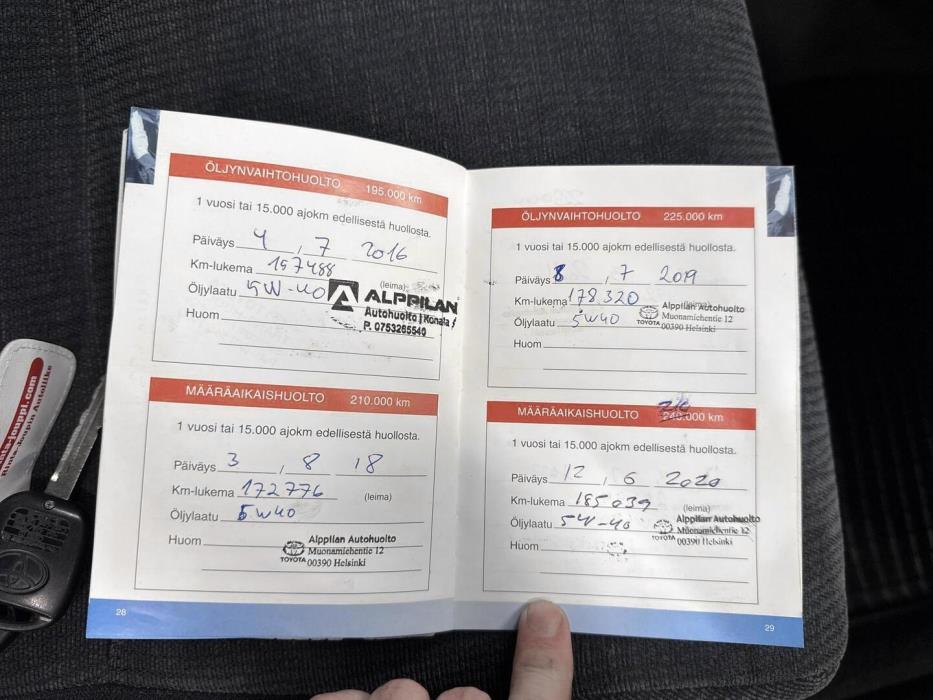 ÖLJYNVAIHTOHUOLTO 195.000 km
1 vuosi tai 15.000 ajokm edellisestä huollosta.
Päiväys 4 , 7 2016
Km-lukema 157488
(leima)
Öljylaatu 5W-40
ALPPILAN
Autohuolto | Konala
P. 0753265540
Huom
MÄÄRÄAIKAISHUOLTO 210.000 km
1 vuosi tai 15.000 ajokm edellisestä huollosta.
Päiväys 3 , 8 18
Km-lukema 172776 (leima)
Öljylaatu 5W40
Huom
Alppilan Autohuolto
Muonamiehentie 12
TOYOTA 00390 Helsinki
28
ÖLJYNVAIHTOHUOLTO 225.000 km
1 vuosi tai 15.000 ajokm edellisestä huollosta.
Päiväys 8 , 7 2019
Km-lukema 178320 (leima)
Öljylaatu 5W40
Alppilan Autohuolto
Muonamiehentie 12
TOYOTA 00390 Helsinki
Huom
MÄÄRÄAIKAISHUOLTO 240.000 km
1 vuosi tai 15.000 ajokm edellisestä huollosta.
Päiväys 12 , 6 2020
Km-lukema 185039 (leima)
Öljylaatu 5W-40
Alppilan Autohuolto
Muonamiehentie 12
TOYOTA 00390 Helsinki
Huom
29
Rinta-Joupin Autoliike
rinta-jouppi.com